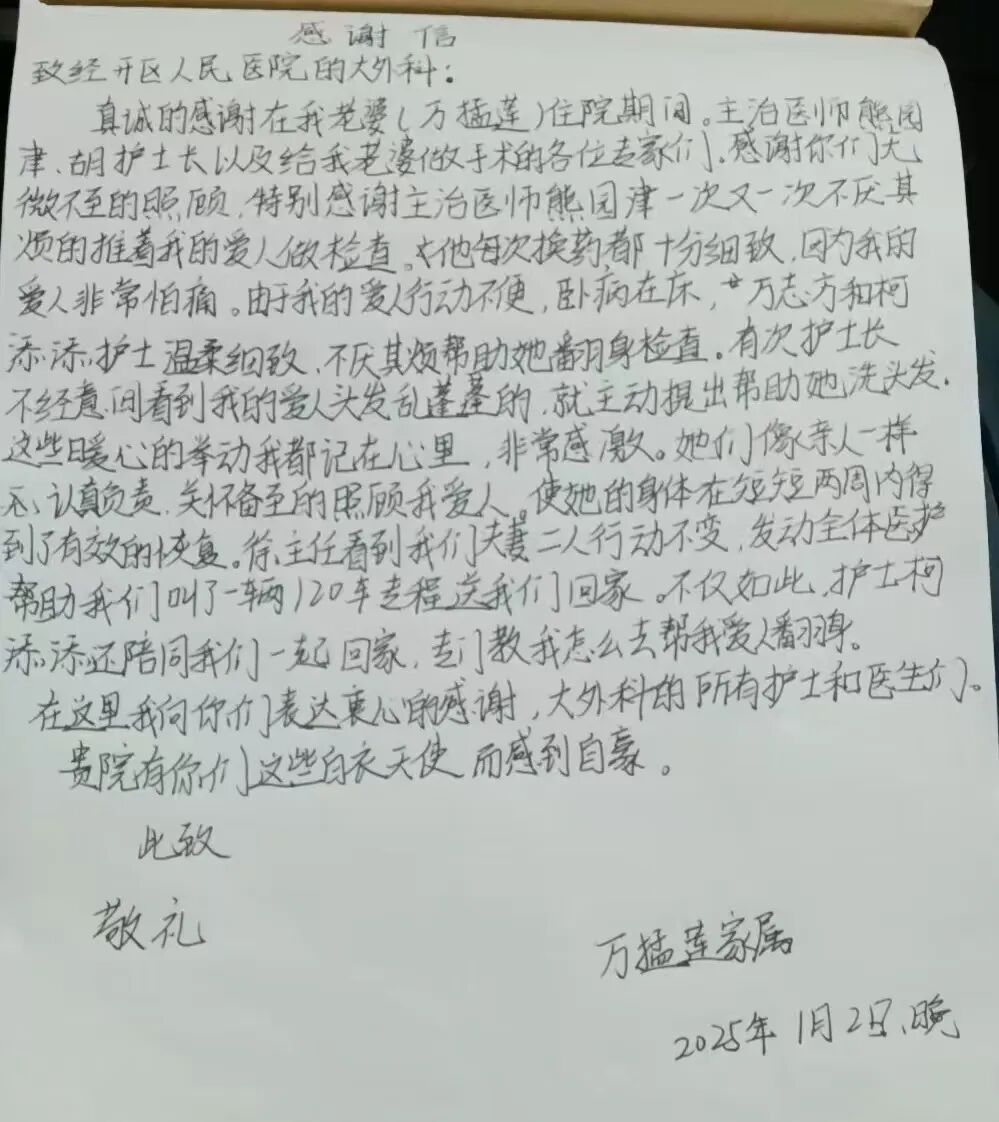 感谢信
致经开区人民医院的大外科：
真诚的感谢在我老婆（万掹莲）住院期间。主治医师熊园
津、胡护士长以及给我老婆做手术的各位专家们。感谢你们无
微不至的照顾，特别感谢主治医师熊园津一次又一次不厌其
烦的推着我的爱人做检查。他每次换药都十分细致，因为我的
爱人非常怕痛。由于我的爱人行动不便，卧病在床，万志方和柯
添添护士温柔细致、不厌其烦帮助她翻身检查。有次护士长
不经意间看到我的爱人头发乱蓬蓬的，就主动提出帮助她洗头发.
这些暖心的举动我都记在心里，非常感激。她们像亲人一样
认真负责、关怀备至的照顾我爱人。使她的身体在短短两周内得
到了有效的恢复。徐主任看到我们夫妻二人行动不变，发动全体医护
帮助我们叫了一辆120车专程送我们回家。不仅如此，护士柯
添添还陪同我们一起回家，专门教我怎么去帮我爱人翻身。
在这里我向你们表达衷心的感谢，大外科的所有护士和医生们。
贵院有你们这些白衣天使而感到自豪。
此致
敬礼
万掹莲家属
2025年1月2日、晚